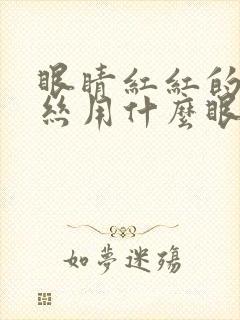 眼睛紅紅的
絲用什麼眼
如夢迷殤